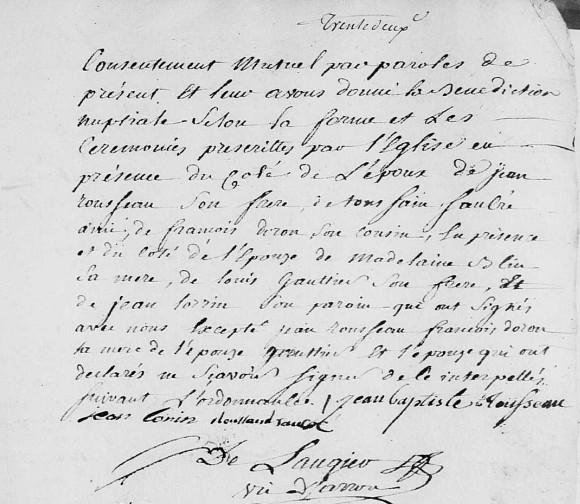 trente deux
Consentement Mutuel par paroles de
présent Et leur avons donné la Benediction
nuptiale Selon la forme et Les
Ceremonies prescrittes par l'Eglise en
présence du Coté de L'époux de jean
rousseau Son frere, de toussain faulré
ami, de francois doron Son cousin, En présence
et du Coté de l'Epouze de Madelaine Blin
Sa mere, de louis Gauttier Son frere, Et
de jean lorrin Son parain qui ont Signés
avec nous Excepté jean rousseau francois doron
la mere de l'épouze gauttier Et l'épouze qui ont
declarés ne Sçavoir Signer de ce interpellés
suivant L'ordonnance jean baptiste Rousseau
jean Lorin
De Laugier